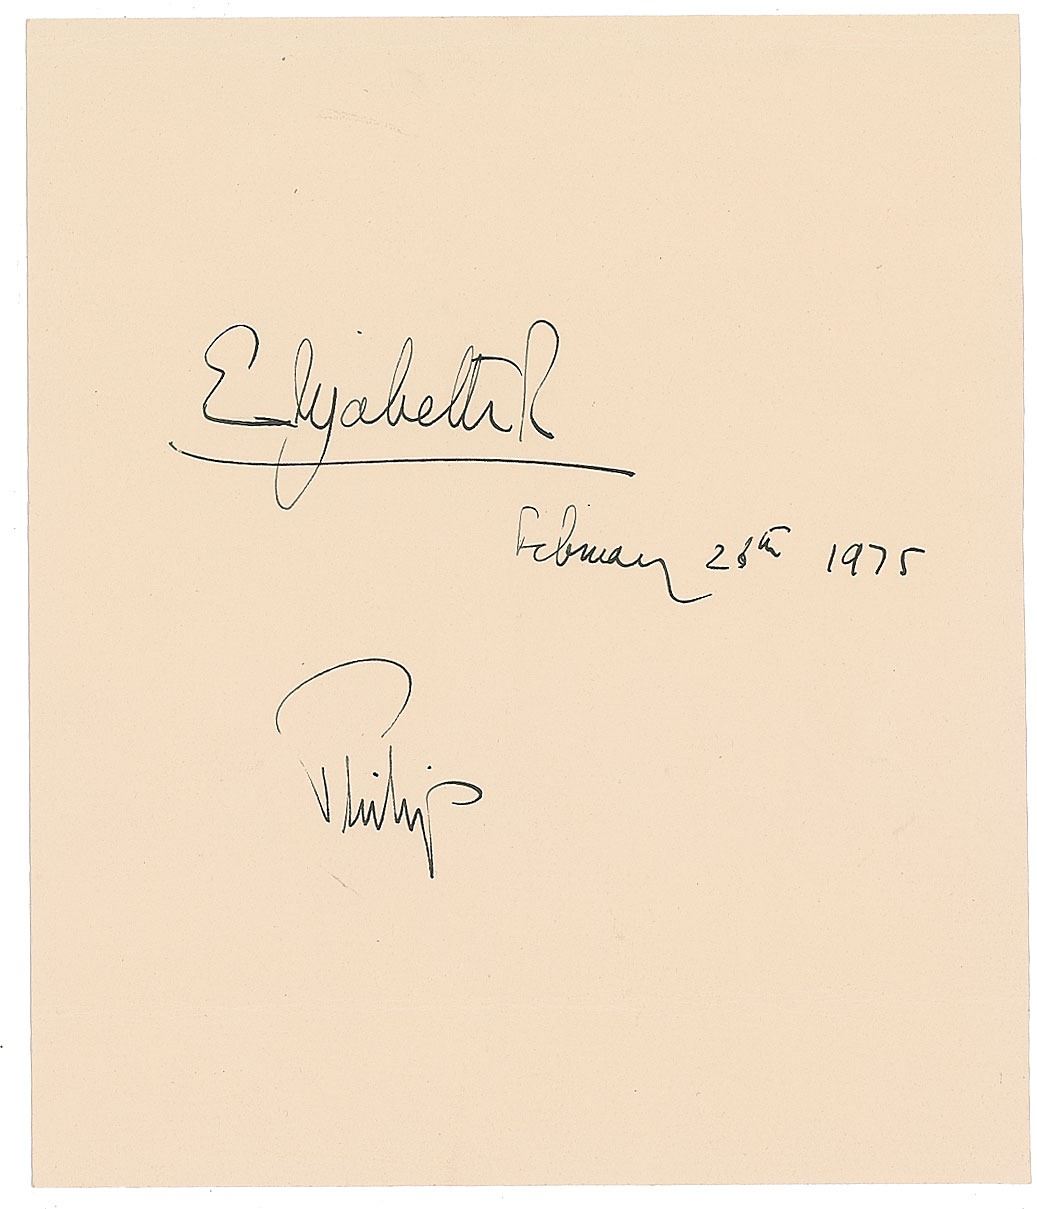 Elizabeth R
February 26th 1975
Philip